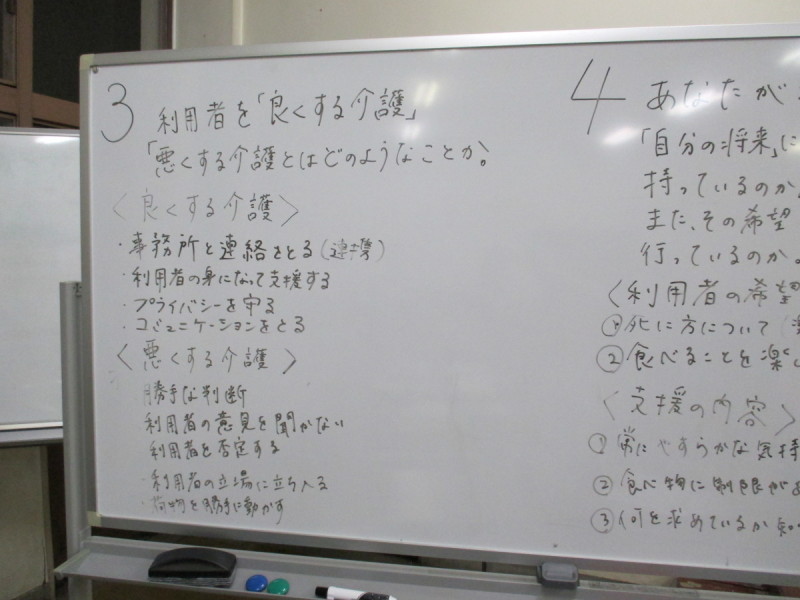 3 利用者を「良くする介護」
「悪くする介護とはどのようなことか。
〈良くする介護〉
・事務所と連絡をとる(連携)
・利用者の身になって支援する
・プライバシーを守る
・コミュニケーションをとる
〈悪くする介護〉
勝手な判断
利用者の意見を聞かない
利用者を否定する
・利用者の立場に立ち入る
・荷物を勝手に動かす
4 あなたが
「自分の将来」に
持っているのか。
また、その希望
行っているのか
〈利用者の希望
①死に方について
②食べることを楽し
〈支援の内容〉
①常にやすらかな気持
②食べ物に制限があ
③何を求めているか知